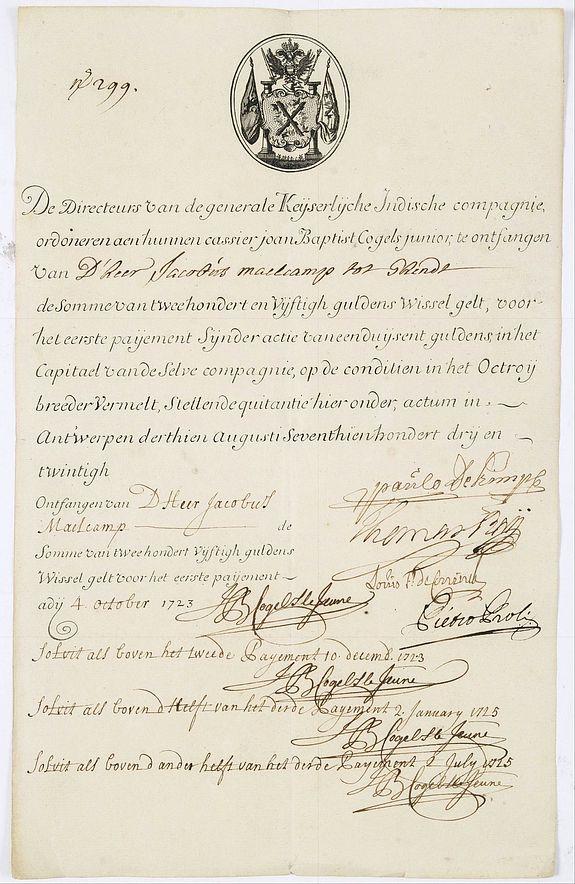 No 299.
De Directeurs van de generale Keijserlijche Indische compagnie,
ordoneren aen hunnen cassier joan Baptist Cogels junior, te ontfangen
van D'heer Jacobus maelcamp tot Ghendt
de Somme van twee hondert en Vijftigh guldens Wissel gelt, voor
het eerste paijement Sijnder actie van een duijsent guldens, in het
Capitael van de Selve compagnie, op de conditien in het Octroij
breeder Vermelt, Stellende quitantie hier onder, actum in
Antwerpen derthien Augusti Seventhien hondert drij en
twintigh
paulo De kimpe
Ontfangen van D Heer Jacobus
Maelcamp de
Thomas Raij
Somme van twee hondert Vijftigh guldens
Wissel gelt voor het eerste paijement
Louis F. de
adij 4. october 1723
JB Cogels le Jeune
Pietro Proli
Solvit als boven het tweede Payement 10. decemb. 1723
JB Cogels le Jeune
Solvit als boven d Helft van het derde Payement 2. January 1725
JB Cogels le Jeune
Solvit als boven d ander helft van het derde Payement July 1725
JB Cogels le Jeune